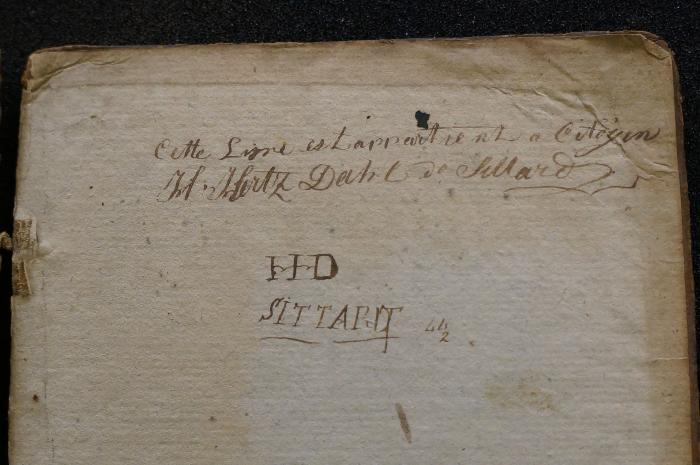 Cette Livre est appartient a Citoÿen
H. Hertz Dahl de Sittard
HD
SITTARD